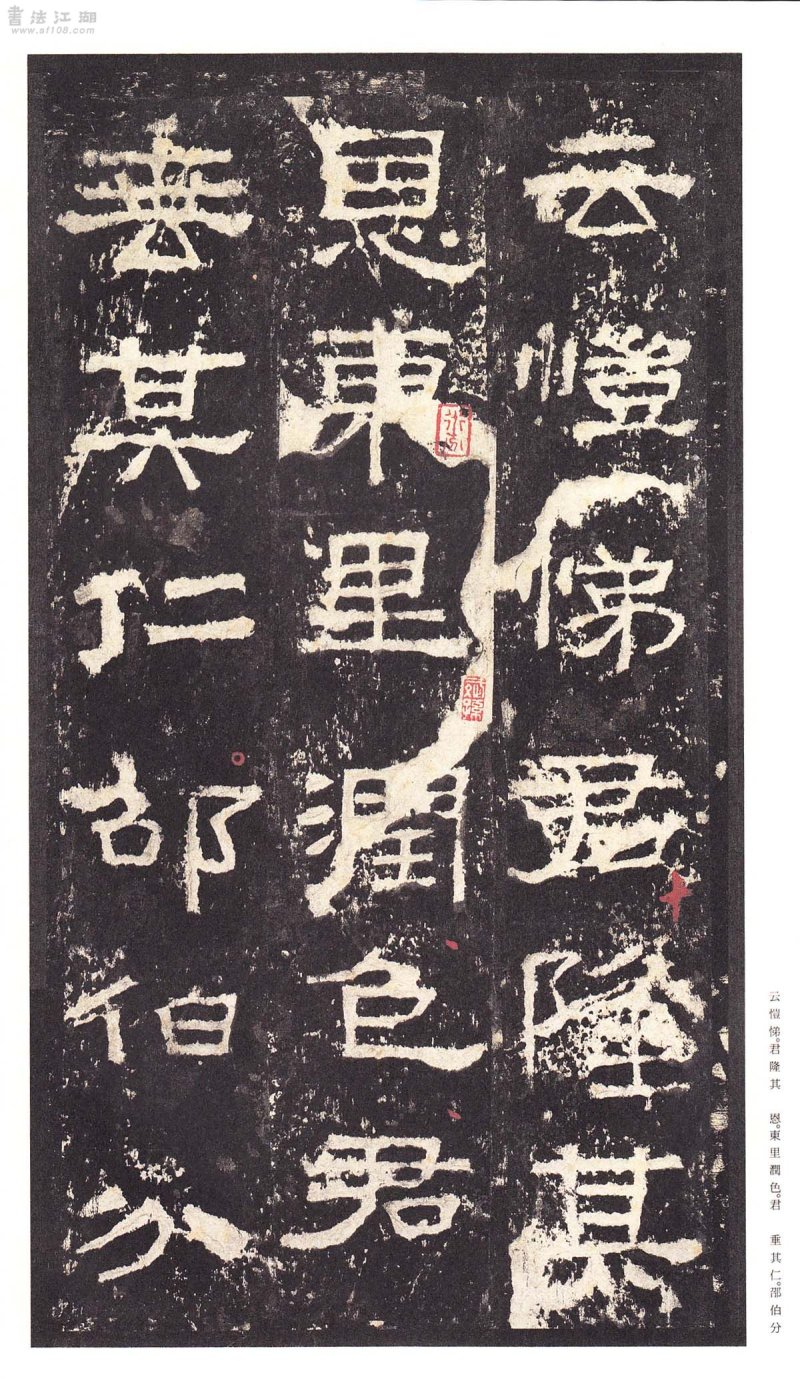 書法江湖
www.af108.com
云愷悌君隆其
恩東里潤色君
垂其仁邵伯分
云愷悌。君隆其　恩。東里潤色。君　垂其仁。邵伯分